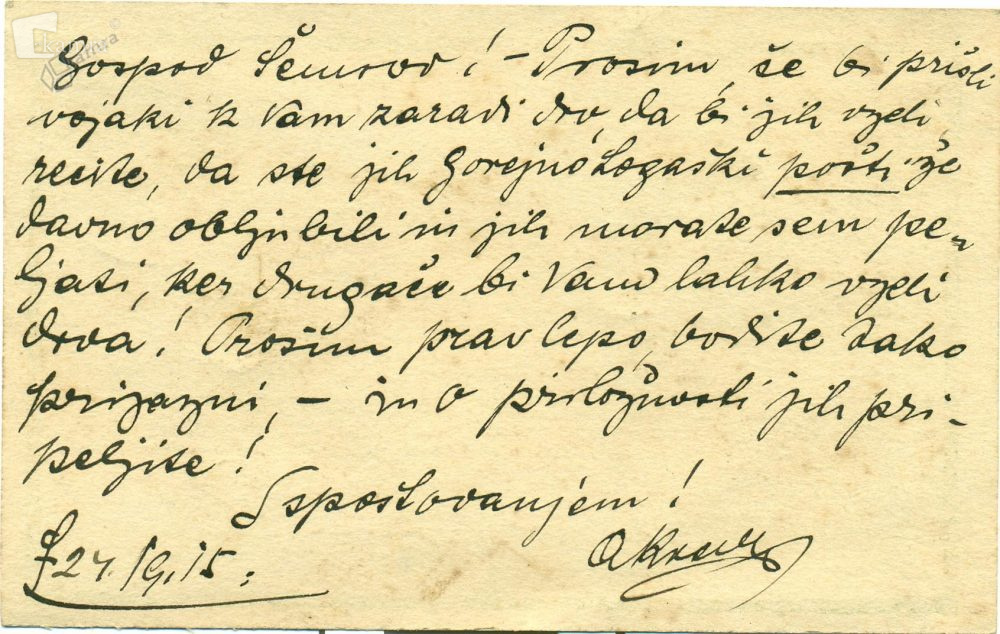 Gospod Šemrov! – Prosim, še bi prišli
vojaki k Vam zaradi drv, da bi jih vzeli,
recite, da ste jih GorejnoLogaški pošti že
davno obljubili in jih morate sem pe-
ljati, ker drugače bi Vam lahko vzeli
drva! Prosim prav lepo, bodite tako
prijazni, – in o priložnosti jih pri-
peljite!
S spoštovanjem!
24. 15.